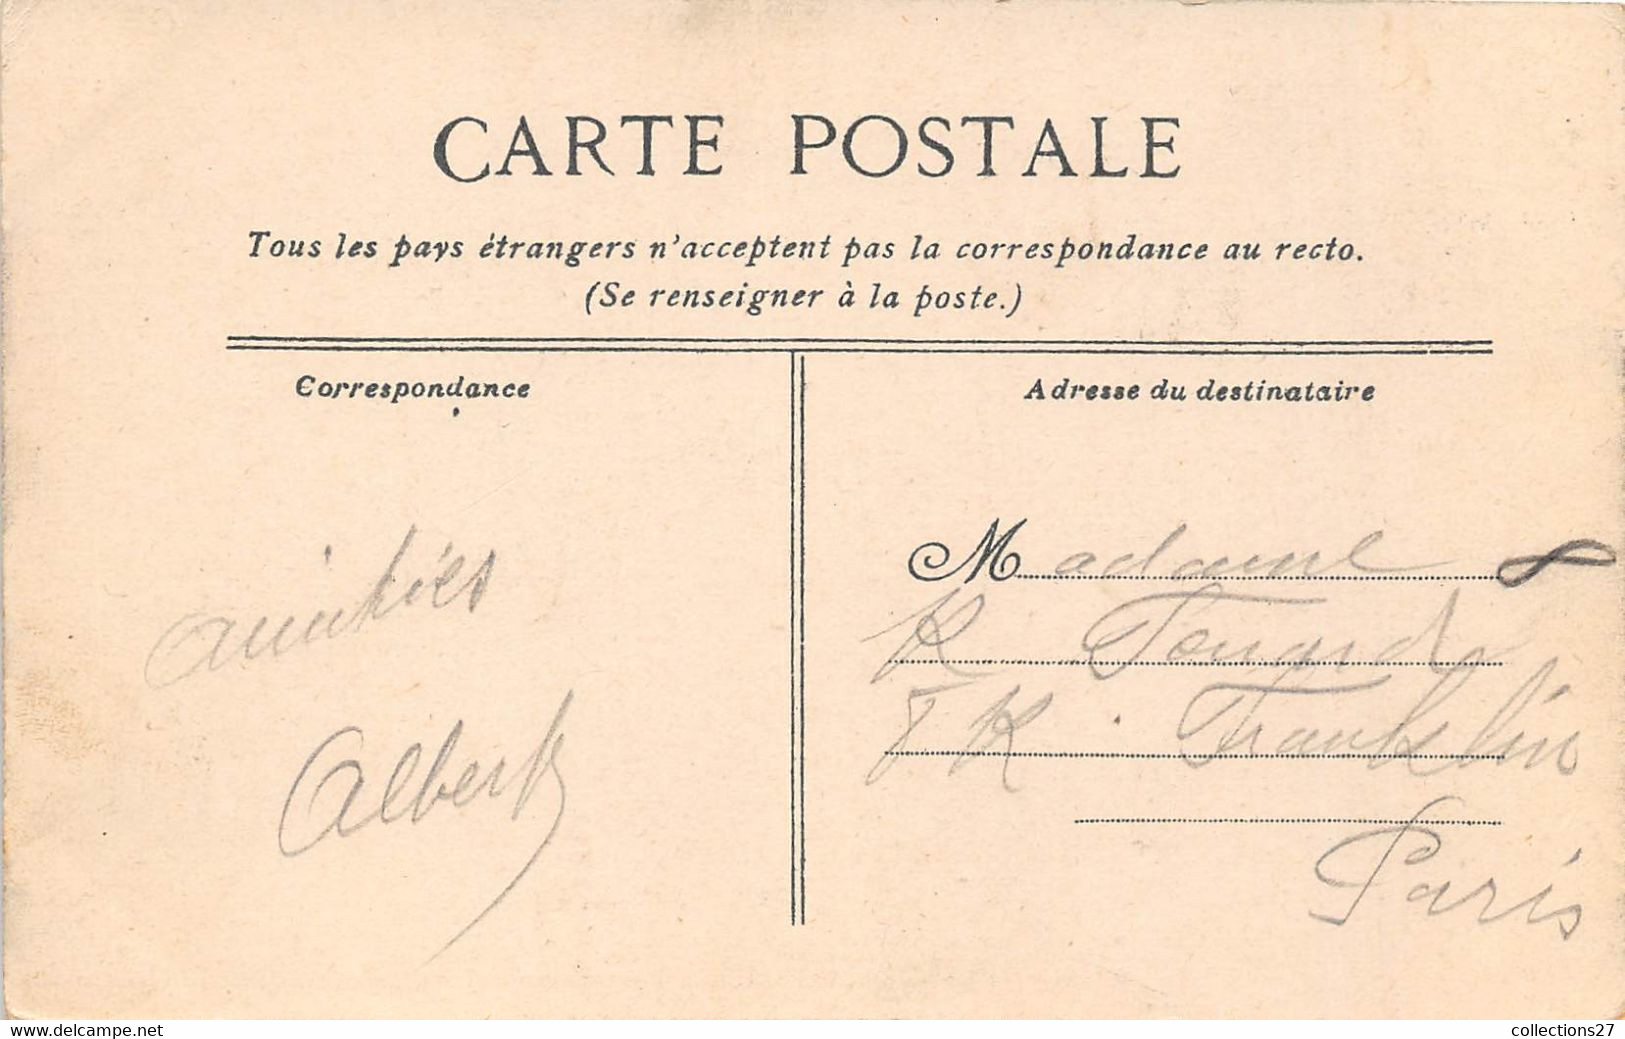 CARTE POSTALE
Tous les pays étrangers n'acceptent pas la correspondance au recto.
(Se renseigner à la poste.)
Correspondance
Adresse du destinataire
amitiés
Albert
Madame
R
Franklin
Paris
www.delcampe.net
collections27